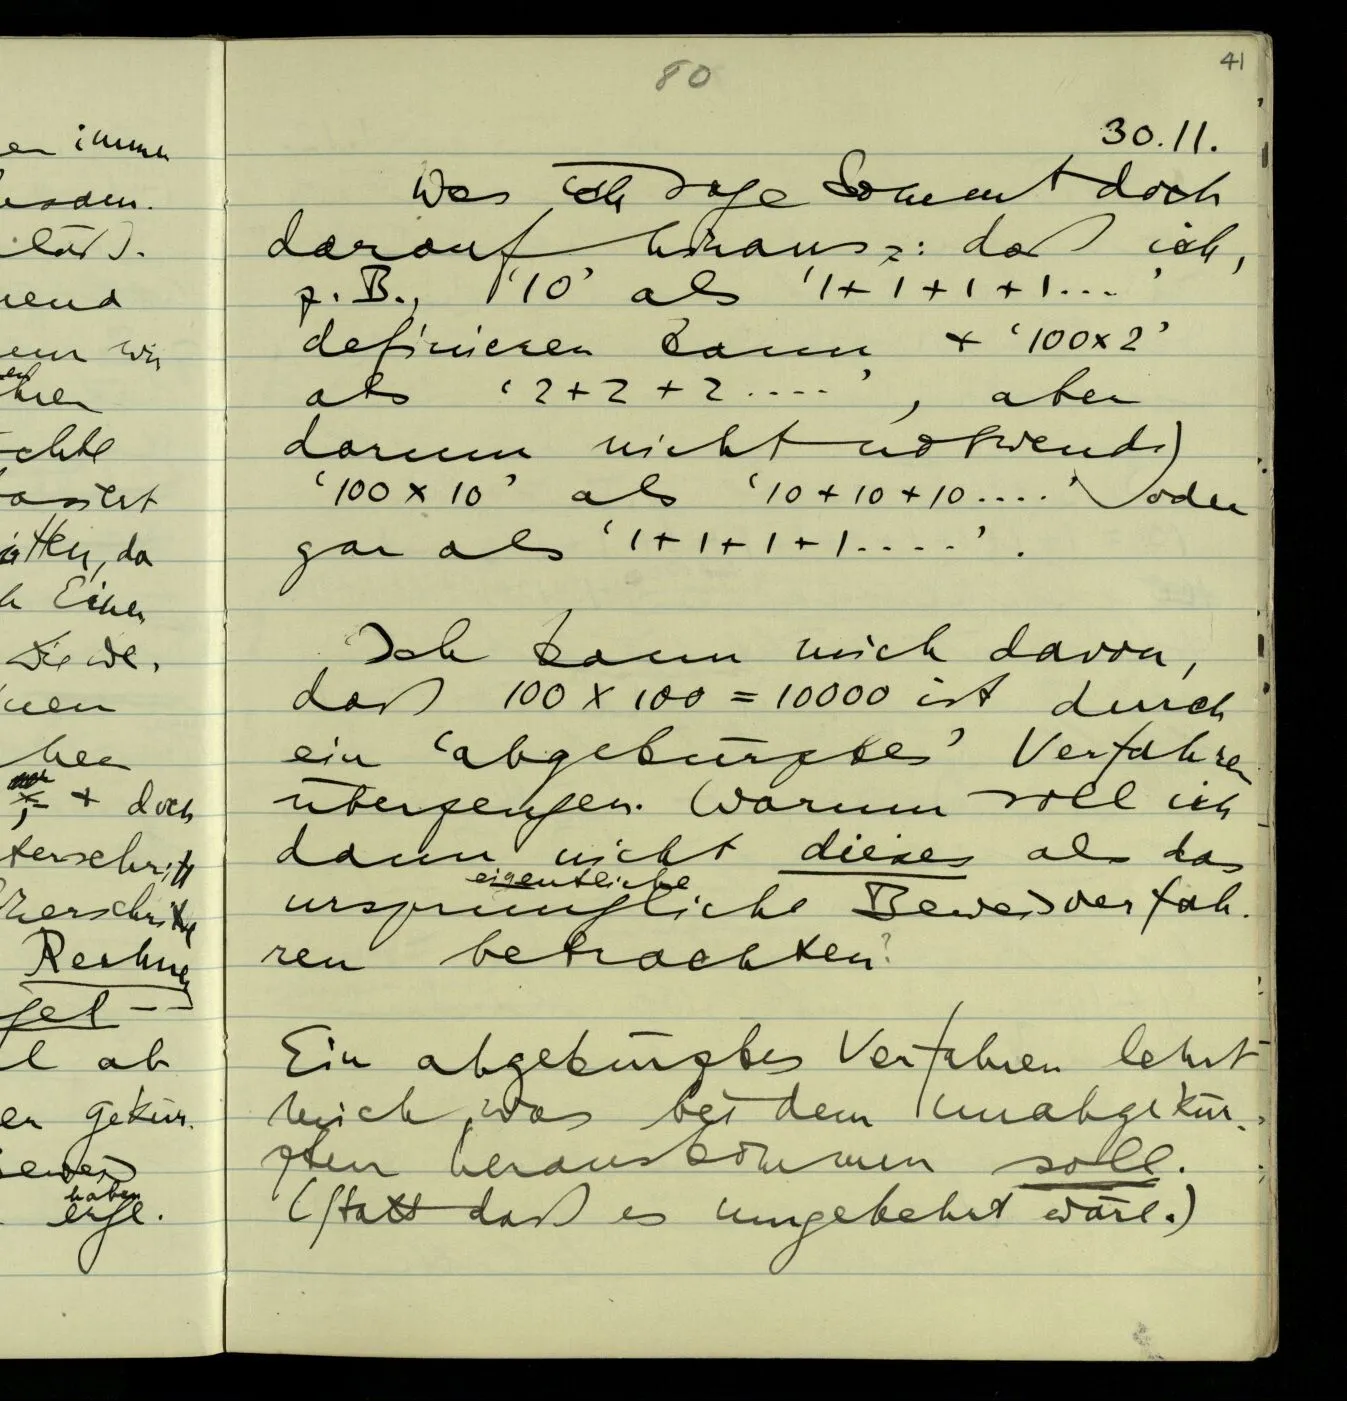 80
41
30.11.
Was ich sage kommt doch
darauf hinaus: daß ich,
z.B., '10' als '1+1+1+1...'
definieren kann + '100x2'
als '2+2+2....', aber
darum nicht notwendig
'100x10' als '10+10+10....' oder
gar als '1+1+1+1.....'.
Ich kann mich davon,
daß 100 x 100 = 10000 ist durch
ein 'abgekürztes' Verfahren
überzeugen. Warum soll ich
dann nicht dieses als das
eigentliche
ursprüngliche Beweisverfah-
ren betrachten?
Ein abgekürztes Verfahren lehrt
mich, was bei dem unabgekür-
zten herauskommen soll.
(Statt daß es umgekehrt wäre.)
immer
wir
+ doch
Rechnung
ab
gekür-
haben